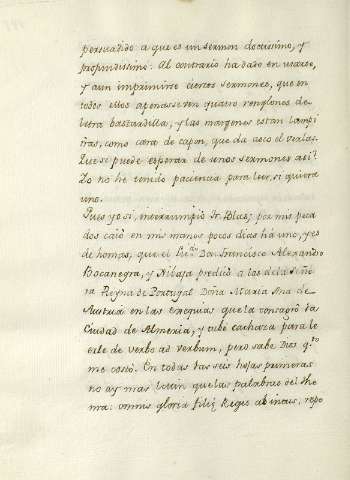 persuadido a que es un sermon doctissimo, y
profundissimo. Al contrario ha dado en usarse,
y aun imprimirse ciertos sermones, que en
todos ellos apenas se ven quatro renglones de
letra bastardilla, y las margenes estan lampi
ñas, como cara de capon, que da asco el verlas.
Que se puede esperar de unos sermones asi?
Yo no he tenido paciencia para leer, si quiera
uno.
Pues yo si, interrumpio Fr. Blas; por mis peca
dos caió en mis manos pocos dias há uno, y es
de honras, que el Sr. Dn. Francisco Alexandro
Bocanegra, y Xibaja predicó a las de la Seño
ra Reyna de Portugal Doña Maria Ana de
Austria en las exequias que la consagró la
Ciudad de Almeria, y tube cachaza para le
erle de verbo ad verbum, pero sabe Dios qto
me costó. En todas las seis hojas primeras
no ay mas latin que las palabras del the
ma: omnis gloria filiæ Regis ab intus, repo